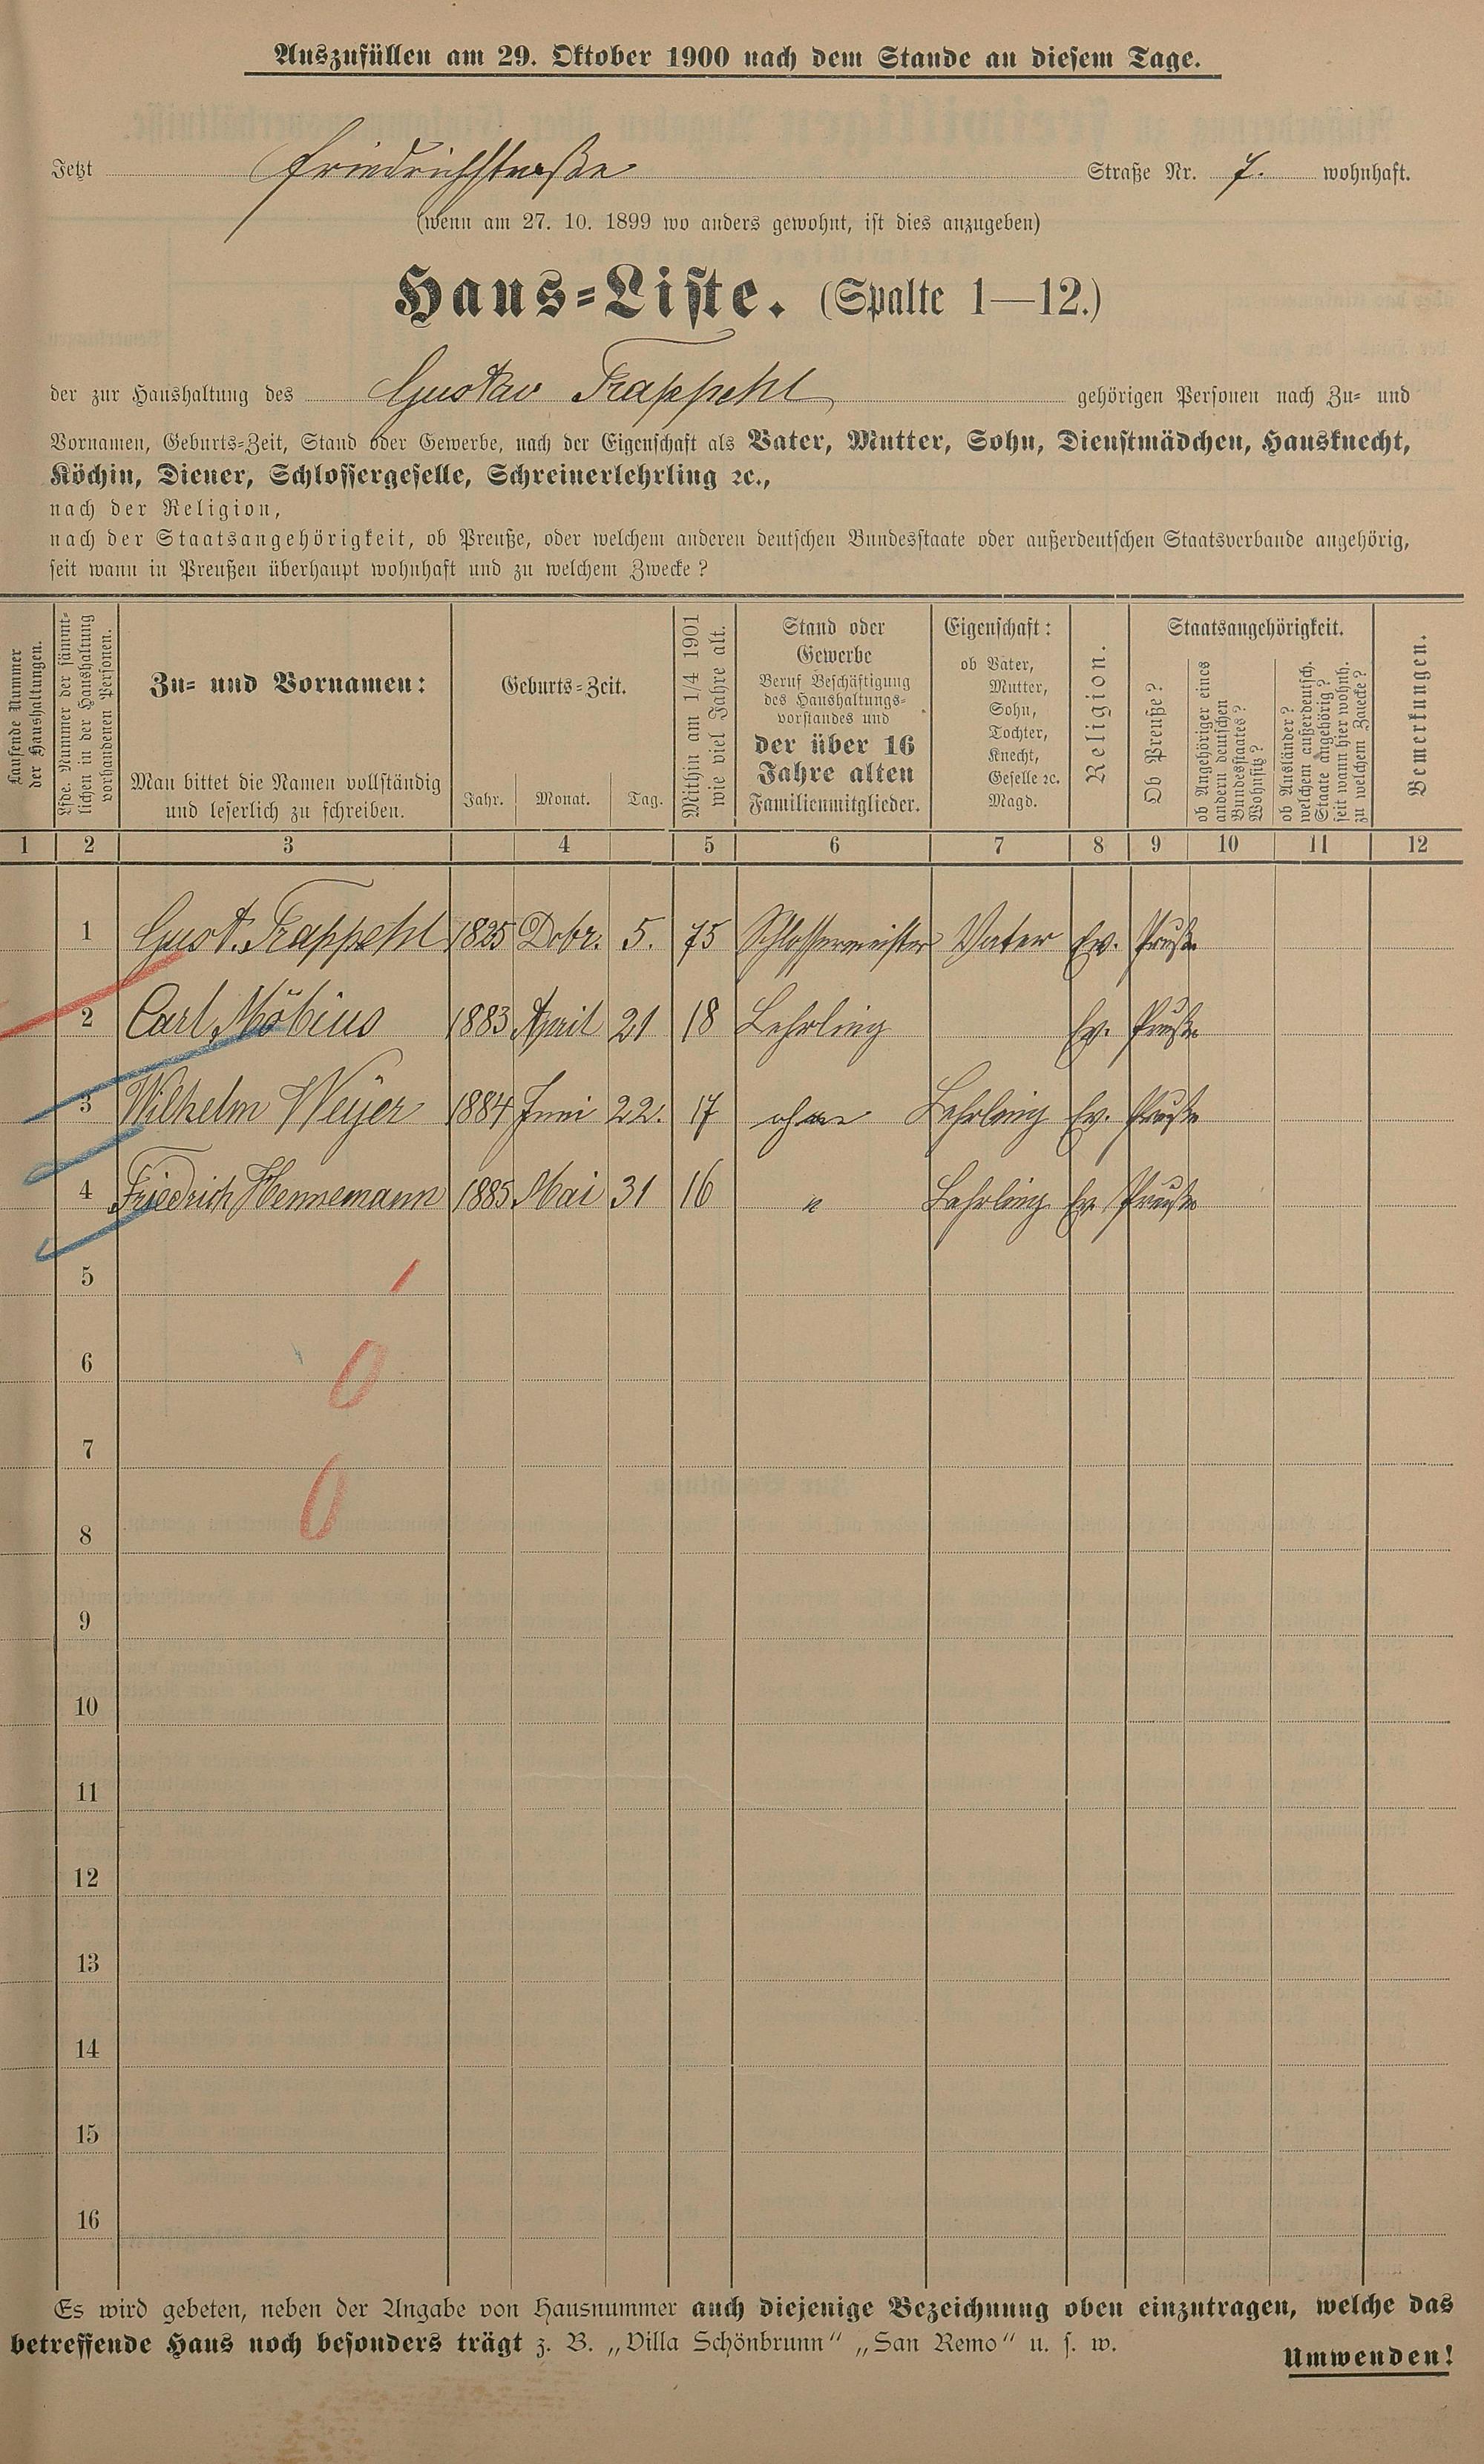 Auszufüllen am 29. Oktober 1900 nach dem Stande an diesem Tage.
Jetzt Friedrichstraße Straße Nr. 7. wohnhaft.
(wenn am 27. 10. 1899 wo anders gewohnt, ist dies anzugeben)
Haus-Liste. (Spalte 1—12.)
der zur Haushaltung des Gustav Trappehl gehörigen Personen nach Zu- und
Vornamen, Geburts-Zeit, Stand oder Gewerbe, nach der Eigenschaft als Vater, Mutter, Sohn, Dienstmädchen, Hausknecht,
Köchin, Diener, Schlossergeselle, Schreinerlehrling ꝛc.,
nach der Religion,
nach der Staatsangehörigkeit, ob Preuße, oder welchem anderen deutschen Bundesstaate oder außerdeutschen Staatsverbande angehörig,
seit wann in Preußen überhaupt wohnhaft und zu welchem Zwecke?
Laufende Nummer
der Haushaltungen.
Lfde. Nummer der sämmt-
lichen in der Haushaltung
vorhandenen Personen.
Zu- und Vornamen:
Man bittet die Namen vollständig
und leserlich zu schreiben.
Geburts-Zeit.
Jahr. Monat. Tag.
Mithin am 1/4 1901
wie viel Jahre alt.
Stand oder
Gewerbe
Beruf Beschäftigung
des Haushaltungs-
vorstandes und
der über 16
Jahre alten
Familienmitglieder.
Eigenschaft:
ob Vater,
Mutter,
Sohn,
Tochter,
Knecht,
Geselle ꝛc.
Magd.
Religion.
Staatsangehörigkeit.
Ob Preuße?
ob Angehöriger eines
andern deutschen
Bundesstaates?
Wohnsitz?
ob Ausländer?
welchem außerdeutsch.
Staate angehörig?
seit wann hier wohnh.
zu welchem Zwecke?
Bemerkungen.
1 2 3 4 5 6 7 8 9 10 11 12
1 Gust. Trappehl 1825 Dcbr. 5. 75 Schlossermeister Vater Ev. Preuße
2 Carl Möbius 1883 April 21 18 Lehrling Ev. Preuße
3 Wilhelm Weyer 1884 Juni 22. 17 ohne Lehrling Ev. Preuße
4 Friedrich Hennemann 1885 Mai 31 16 " Lehrling Ev. Preuße
5
6
7
8
9
10
11
12
13
14
15
16
Es wird gebeten, neben der Angabe von Hausnummer auch diejenige Bezeichnung oben einzutragen, welche das
betreffende Haus noch besonders trägt z. B. „Villa Schönbrunn“ „San Remo“ u. s. w.
Umwenden!